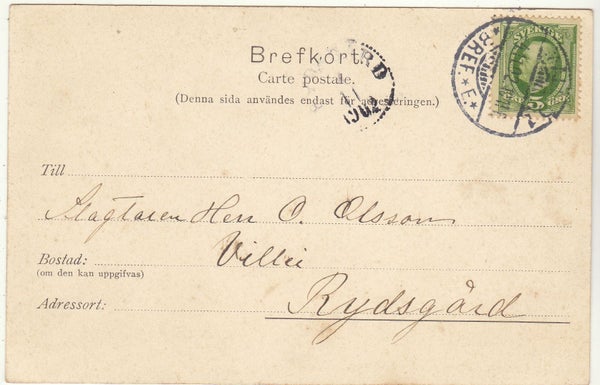 Brefkort
Carte postale.
(Denna sida användes endast för adresseringen.)
SVERIGE
5 ÖRE
BREF.
Till
Herr O. Olsson
Bostad: Villie
(om den kan uppgifvas)
Adressort: Rydsgård